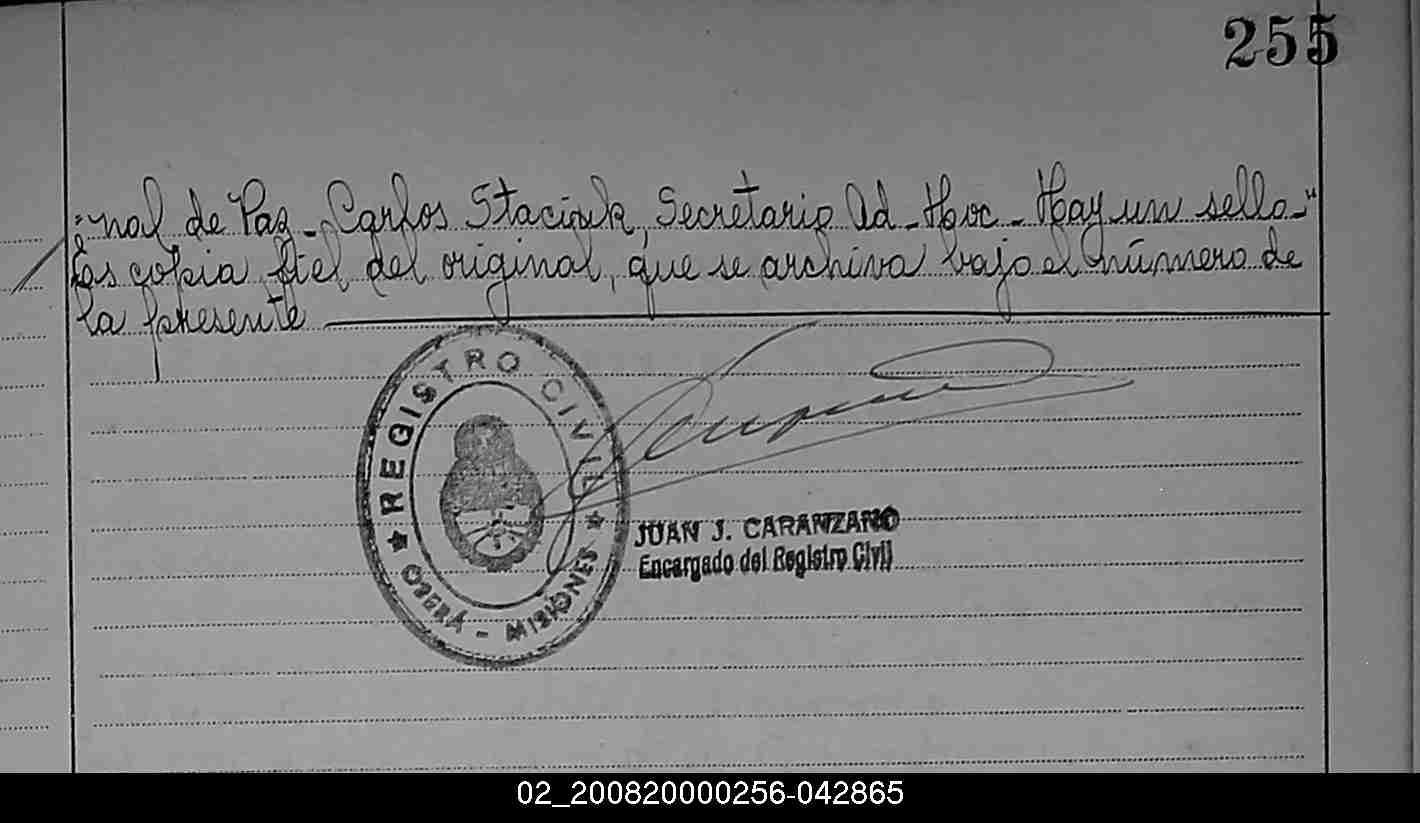 255
"nal de Paz - Carlos Staciuk, Secretario Ad-Hoc - Hay un sello-"
Es copia fiel del original, que se archiva bajo el número de
la presente
REGISTRO CIVIL
OBERÁ - MISIONES
JUAN J. CARANZANO
Encargado del Registro Civil
02_200820000256-042865